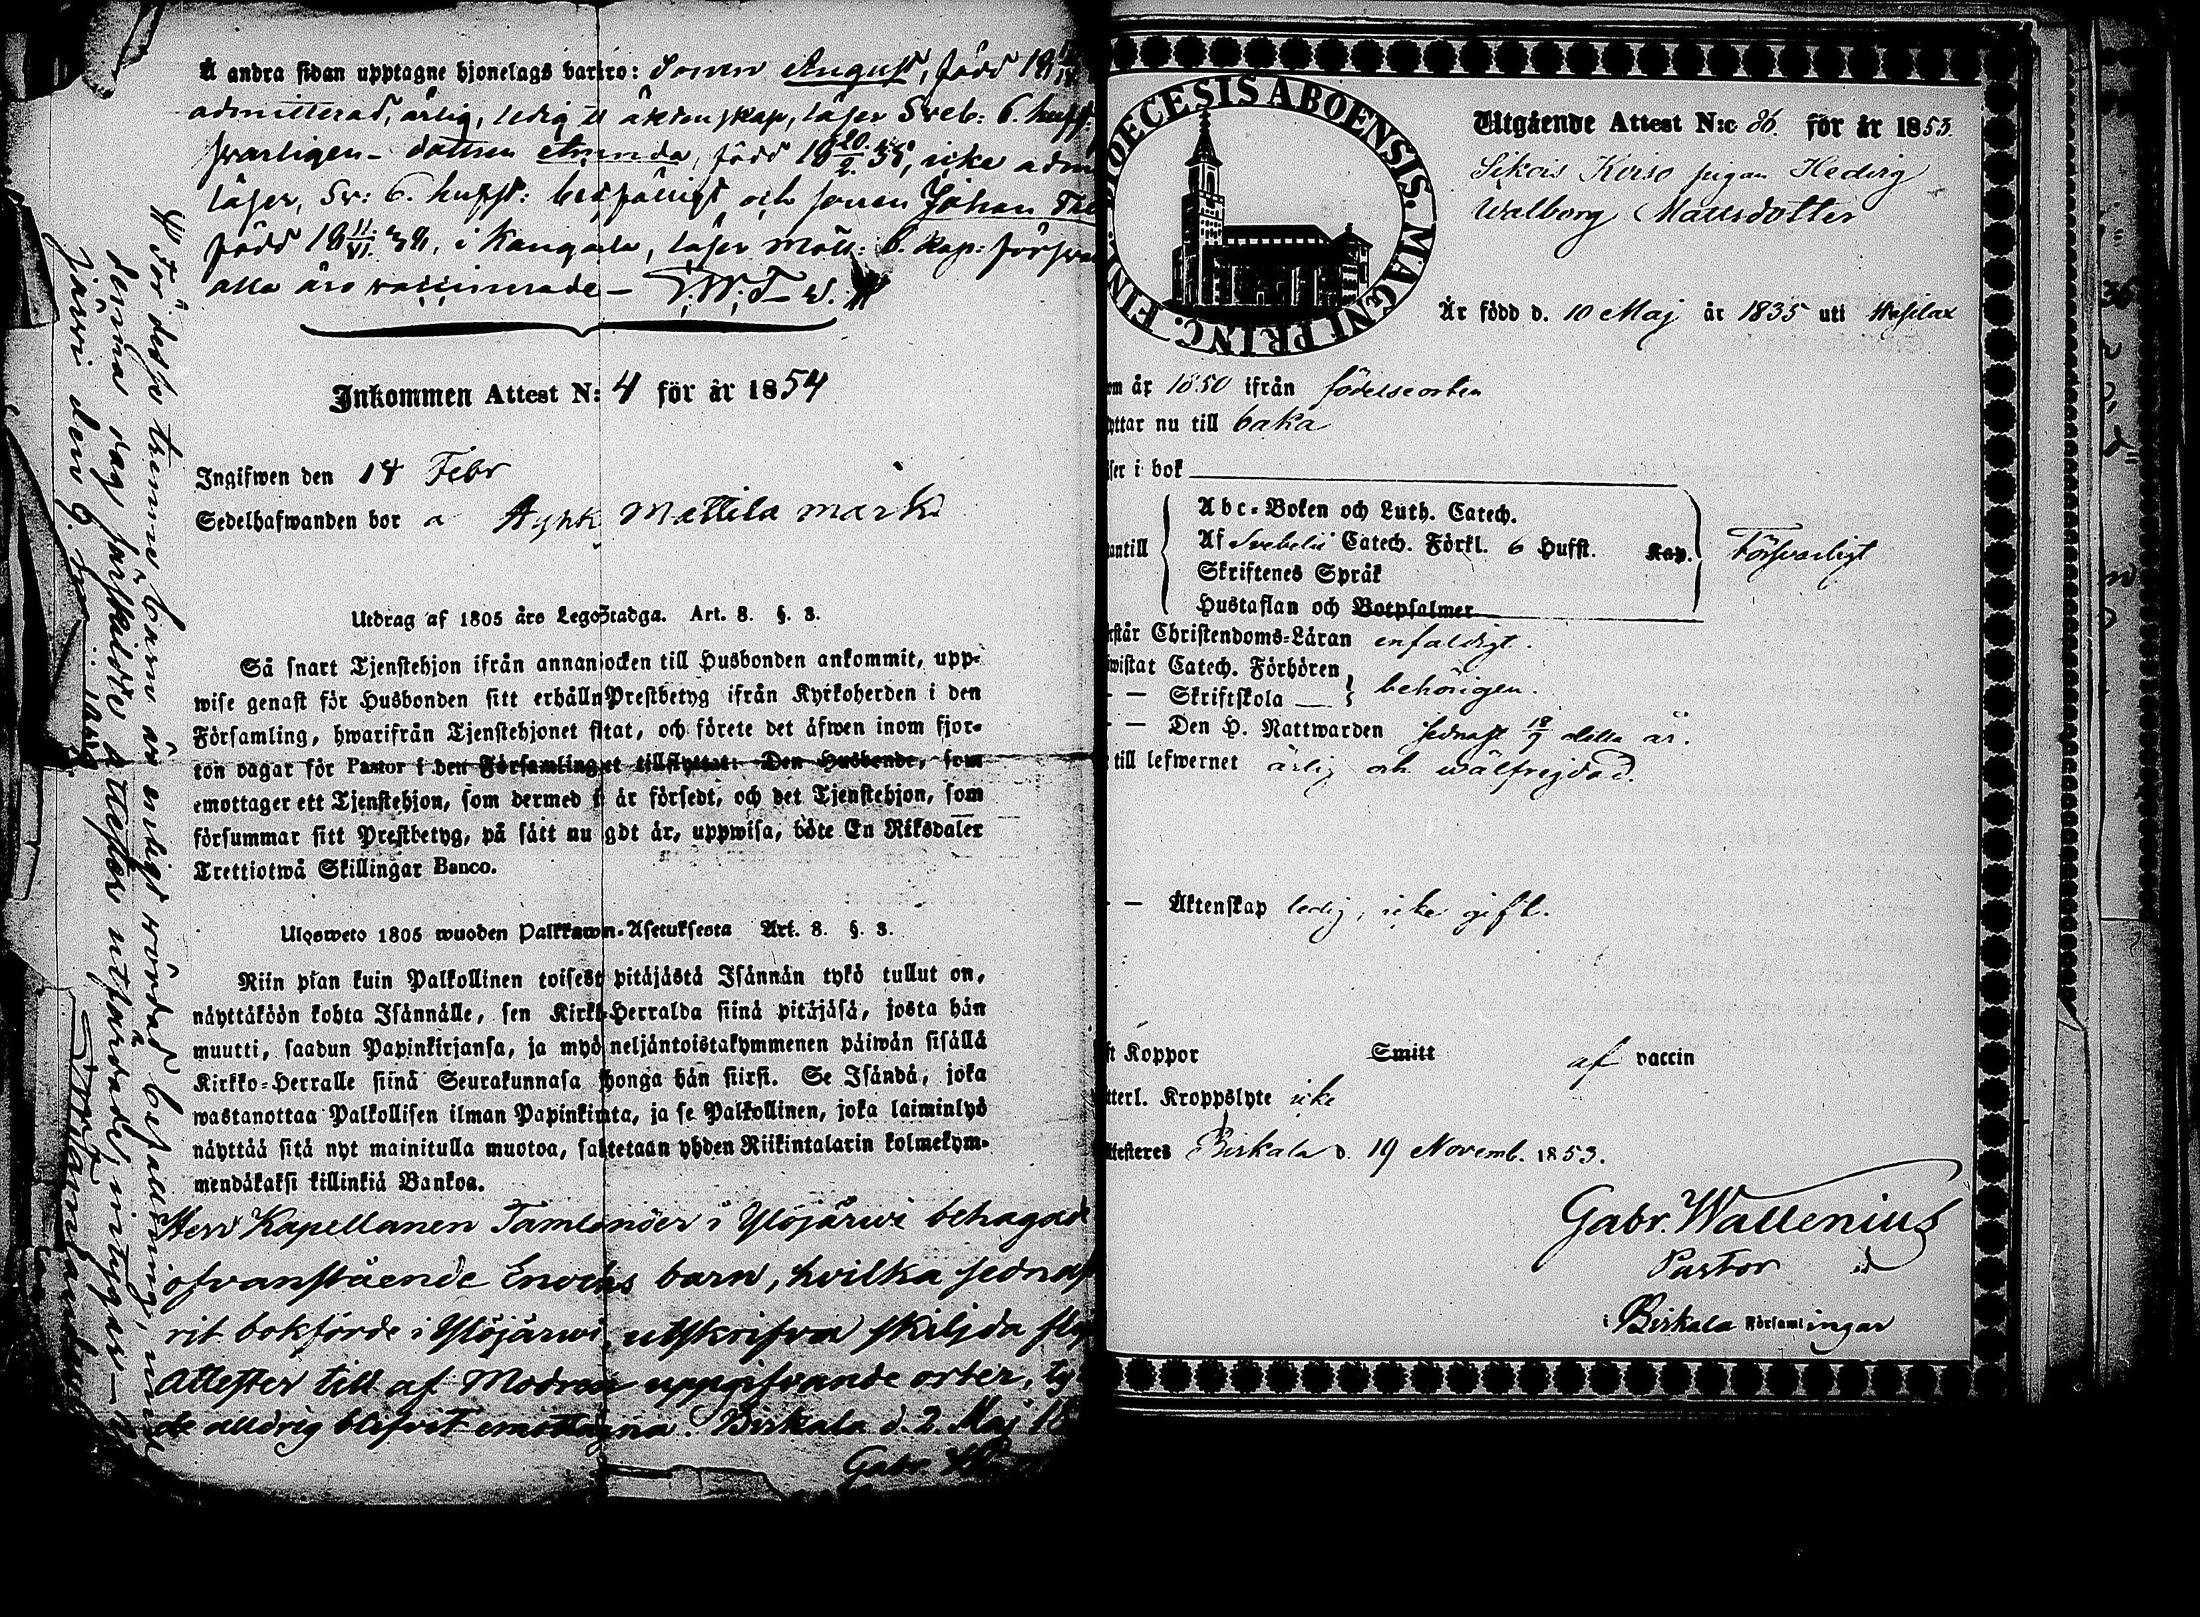 Å andra sidan upptagne hjonelags barn: Sonen August, född 18
admitterad, ärlig, ledig t. äktenskap, läser Sveb: 6. hufst:
svarligen – dottren Amanda, född 18 20/2 35, icke adm
läser, Sv: 6. hufst: betfälligt och sonen Johan
född 18 11/VI 39, i Kangala, läser möll: 6. kap: försva
alla äro vaccinerade –
Inkommen Attest N: 4 för år 1854
Ingifwen den 14 Febr
Sedelhafwanden bor a Mattila mark
Utdrag af 1805 års LegoStadga. Art. 8. §. 3.
Så snart Tjenstehjon ifrån annan socken till Husbonden ankommit, upp-
wise genast för Husbonden sitt erhålln Prestbetyg ifrån Kyrkoherden i den
Församling, hwarifrån Tjenstehjonet flytat, och förete det äfwen inom fjor-
ton dagar för Pastor i den Församling et tillflyttat: Den Husbonde, som
emottager ett Tjenstehjon, som dermed är försedt, och det Tjenstehjon, som
försummar sitt Prestbetyg, på sätt nu gdt är, uppwisa, böte En Riksdaler
Trettiotwå Skillingar Banco.
Ulosweto 1805 wuoden Palkkawn-Asetuksesta Art. 8. §. 3.
Niin pian kuin Palkollinen toisest pitäjästä Isännän tykö tullut on,
näyttäköön kohta Isännälle, sen Kirkk-Herralda siinä pitäjäsä, josta hän
muutti, saadun Papinkirjansa, ja myö neljäntoistakymmenen päiwän sisällä
Kirkko-Herralle siinä Seurakunnasa jhonga hän siirsi. Se Isändä, joka
wastanottaa Palkollisen ilman Papinkirjata, ja se Palkollinen, joka laiminlyö
näyttää sitä nyt mainitulla muotoa, sakotetaan yhden Riikintalarin kolmekym-
mendäkaksi killinkiä Bankoa.
Herr Kapellanen Tamlander i Ylöjärwi behagade
ofvanstående Enochs barn, hvilka sednast
rit bokförde i Ylöjärwi, utskrifva skiljda fly
Attester till af Modren uppgifvande orter, ty
de alldrig blifvit emottagna. Birkala d. 2. Maj 18
Gabr. W
För desse trenne barn är enligt vördad befallning, un
denna dag särskildte Attester utfärdade, intygar – Ylö-
järvi den 9. Maj
DIOECESIS ABOENSIS. MAGNI PRINC. FINL.
Utgående Attest N:o 86. för år 1853.
Sikois Keiso pigan Hedvig
Walborg Mattsdotter
Är född d. 10 Maj år 1835 uti Wesilax
om år 1850 ifrån födelseorten
yttar nu till baka
ser i bok
antill
Abc-Boken och Luth. Catech.
Af Svebelii Catech. Förkl. 6 Hufst. Kap. Försvarligt
Skriftenes Språk
Hustaflan och Botpsalmer
rstår Christendoms-Läran enfaldigt.
wistat Catech. Förhören
– – Skriftskola – behörigen.
– – Den H. Nattwarden sednast 18/9 detta år.
till lefwernet ärlig och wälfrejdad.
– – Äktenskap ledig, icke gift.
ft Koppor Smitt af vaccin
tterl. Kroppslyte icke
Attesteres Birkala d. 19 Novemb. 1853.
Gabr. Wallenius
Pastor
i Birkala Församlingar